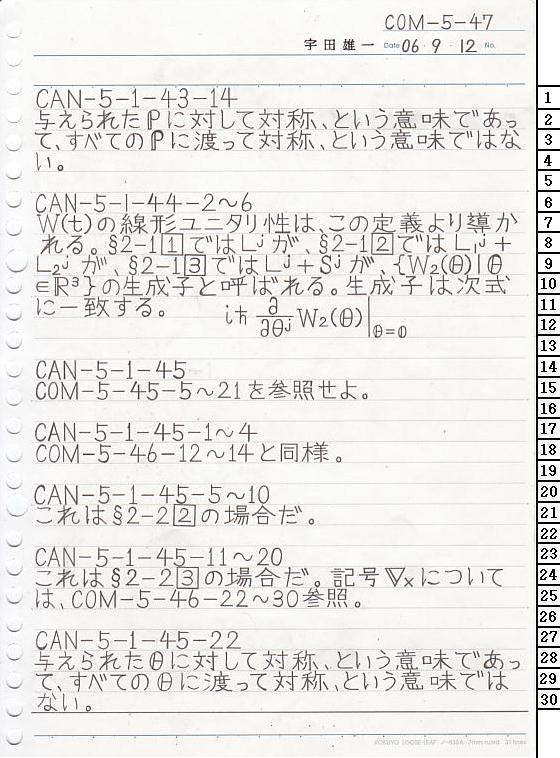 COM-5-47
宇田雄一 Date 06・9・12 No.
CAN-5-1-43-14
与えられたℙに対して対称、という意味であっ
て、すべてのℙに渡って対称、という意味ではな
い。
CAN-5-1-44-2〜6
W(t)の線形ユニタリ性は、この定義より導か
れる。§2-1[1]ではL^jが、§2-1[2]ではL₁^j+
L₂^jが、§2-1[3]ではL^j+S^jが、{W₂(θ)|θ
∈ℝ³}の生成子と呼ばれる。生成子は次式
に一致する。 iℏ ∂/∂θ^j W₂(θ)|_θ=0
CAN-5-1-45
COM-5-45-5〜21を参照せよ。
CAN-5-1-45-1〜4
COM-5-46-12〜14と同様。
CAN-5-1-45-5〜10
これは§2-2[2]の場合だ。
CAN-5-1-45-11〜20
これは§2-2[3]の場合だ。記号∇ₓについて
は、COM-5-46-22〜30参照。
CAN-5-1-45-22
与えられたθに対して対称、という意味であっ
て、すべてのθに渡って対称、という意味では
ない。
KOKUYO LOOSE-LEAF ノ-836A 7mm ruled 31 lines
1
2
3
4
5
6
7
8
9
10
11
12
13
14
15
16
17
18
19
20
21
22
23
24
25
26
27
28
29
30